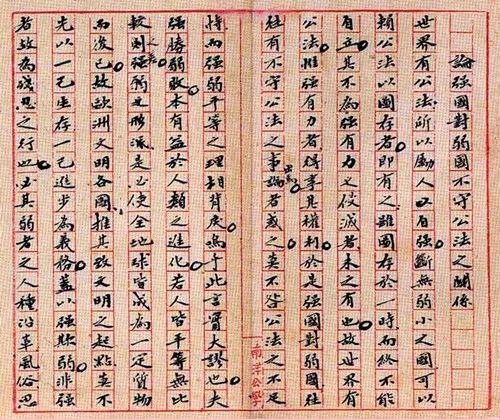 論強國對弱國不守公法之關係
世界有公法所以勵人以自強斷無弱小之國可以
賴公法以圖存者即有之雖圖存於一時而終不能
自立其不為強有力之侵滅者未之有也故世界有
公法惟強有力者得享其權利於是強國對弱國往
往有不守公法之事出焉論者惑之莫不咎公法之不足
恃而強弱平等之理相背戾嗚乎此言實大謬也夫
強勝弱敗本有益於人類之進化若人皆平等無比
較則強弱之形泯是必使全地球皆成為一定質物
而後已故歐洲文明各國推其致文明之起點莫不
先以一己生存一己進步為義務蓋以強欺弱非強
者故為殘忍之行也必其弱者之人種沿革風俗思
南洋公學